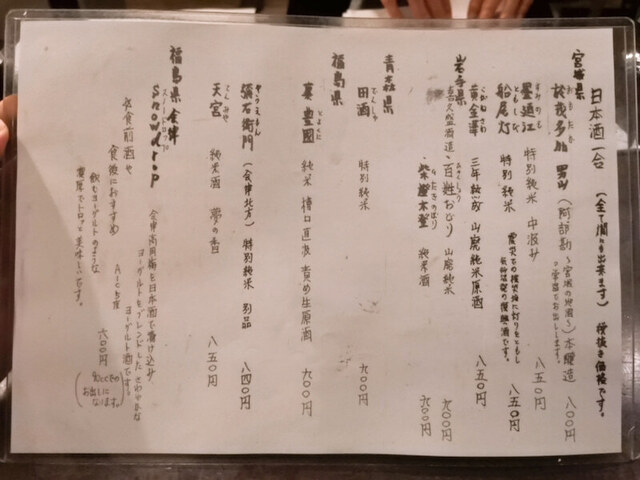 日本酒一合 (全て燗も出来ます) 税抜き価格です。
宮城県
男山 (阿部勘 〜宮城の地酒〜) 本醸造 八〇〇円
墨廼江 特別純米 中汲み 八五〇円
船尾灯 特別純米 八五〇円
岩手県
黄金澤 三年熟成 山廃純米原酒 八五〇円
百姓おどり 山廃純米 九〇〇円
純米酒 九〇〇円
青森県
田酒 特別純米 九〇〇円
福島県
豊國 純米 槽口直汲 責め生原酒 九〇〇円
弥右衛門 (会津北方) 特別純米 別品 八四〇円
天宮 純米酒 夢の香 八五〇円
福島県 会津
スノードロップ
Snowdrop
会津高同梅を日本酒で漬け込み
ヨーグルトをブレンドしたさわやかな
ヨーグルト酒です。
食前酒や
食後におすすめ
飲むヨーグルトのような
濃厚でトロッと美味しいです。
六〇〇円
お出しに
なります。